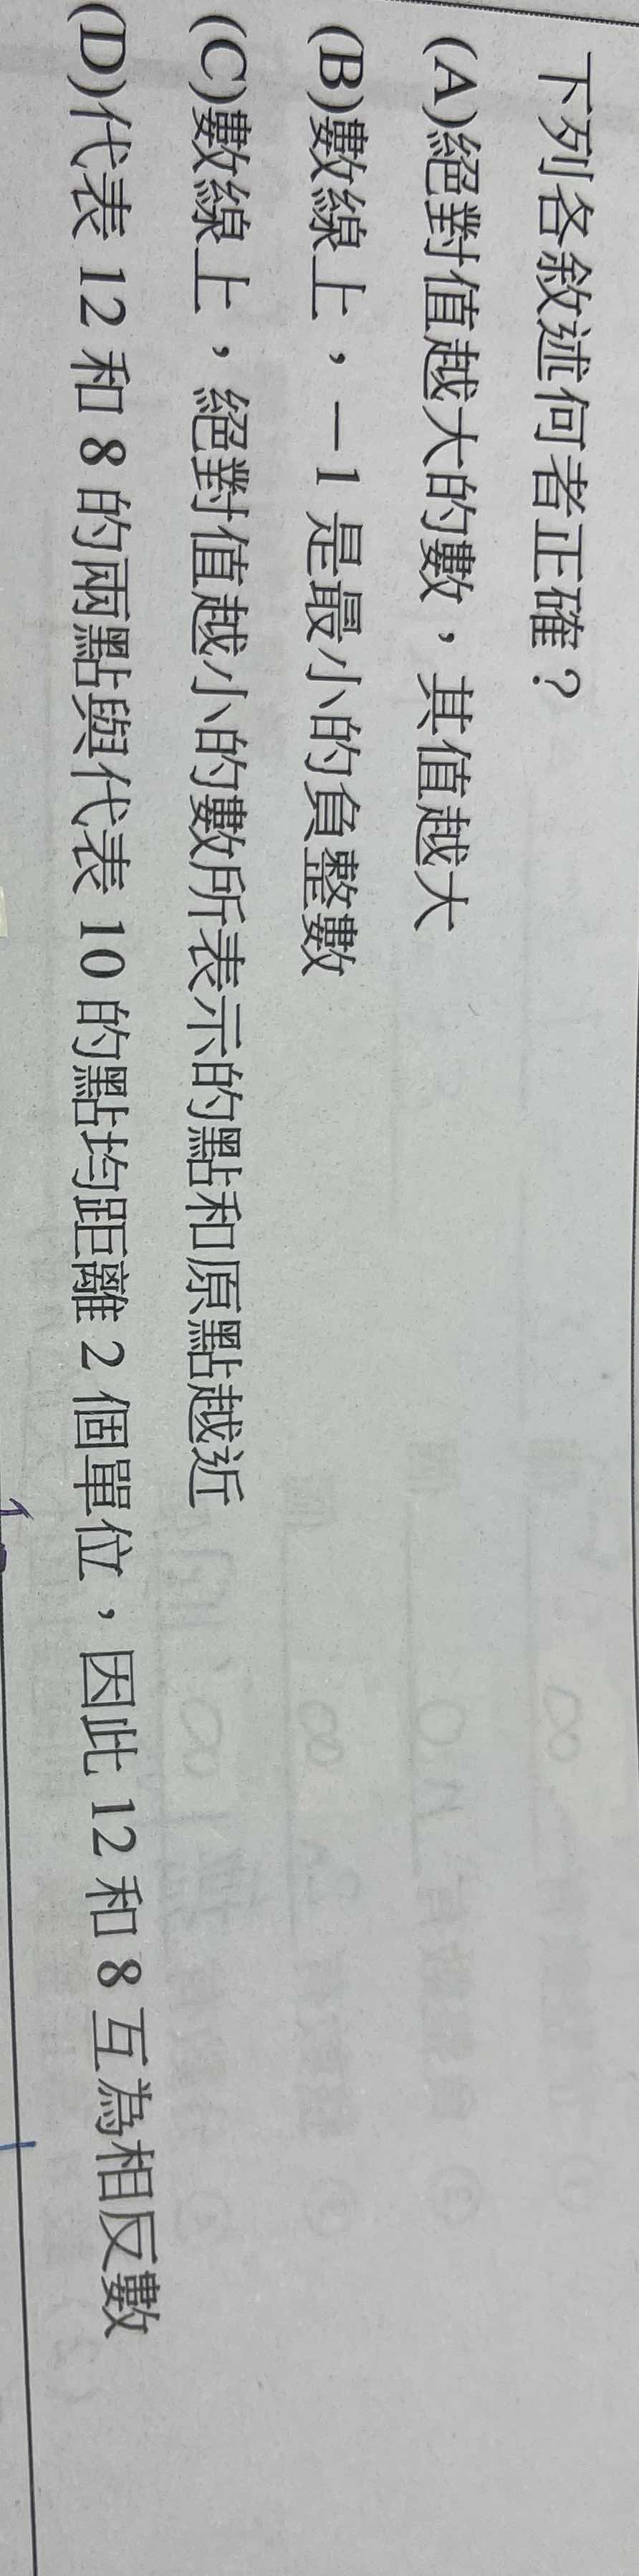 下列各敘述何者正確？
(A)絕對值越大的數，其值越大
(B)數線上，－1 是最小的負整數
(C)數線上，絕對值越小的數所表示的點和原點越近
(D)代表 12 和 8 的兩點與代表 10 的點均距離 2 個單位，因此 12 和 8 互為相反數